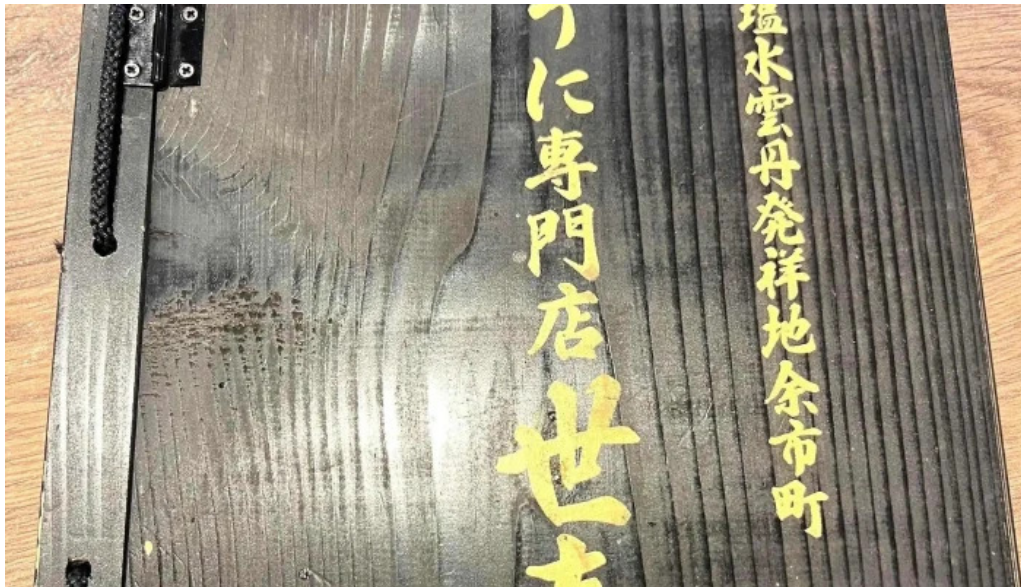 塩水雲丹発祥地余市町
うに専門店世